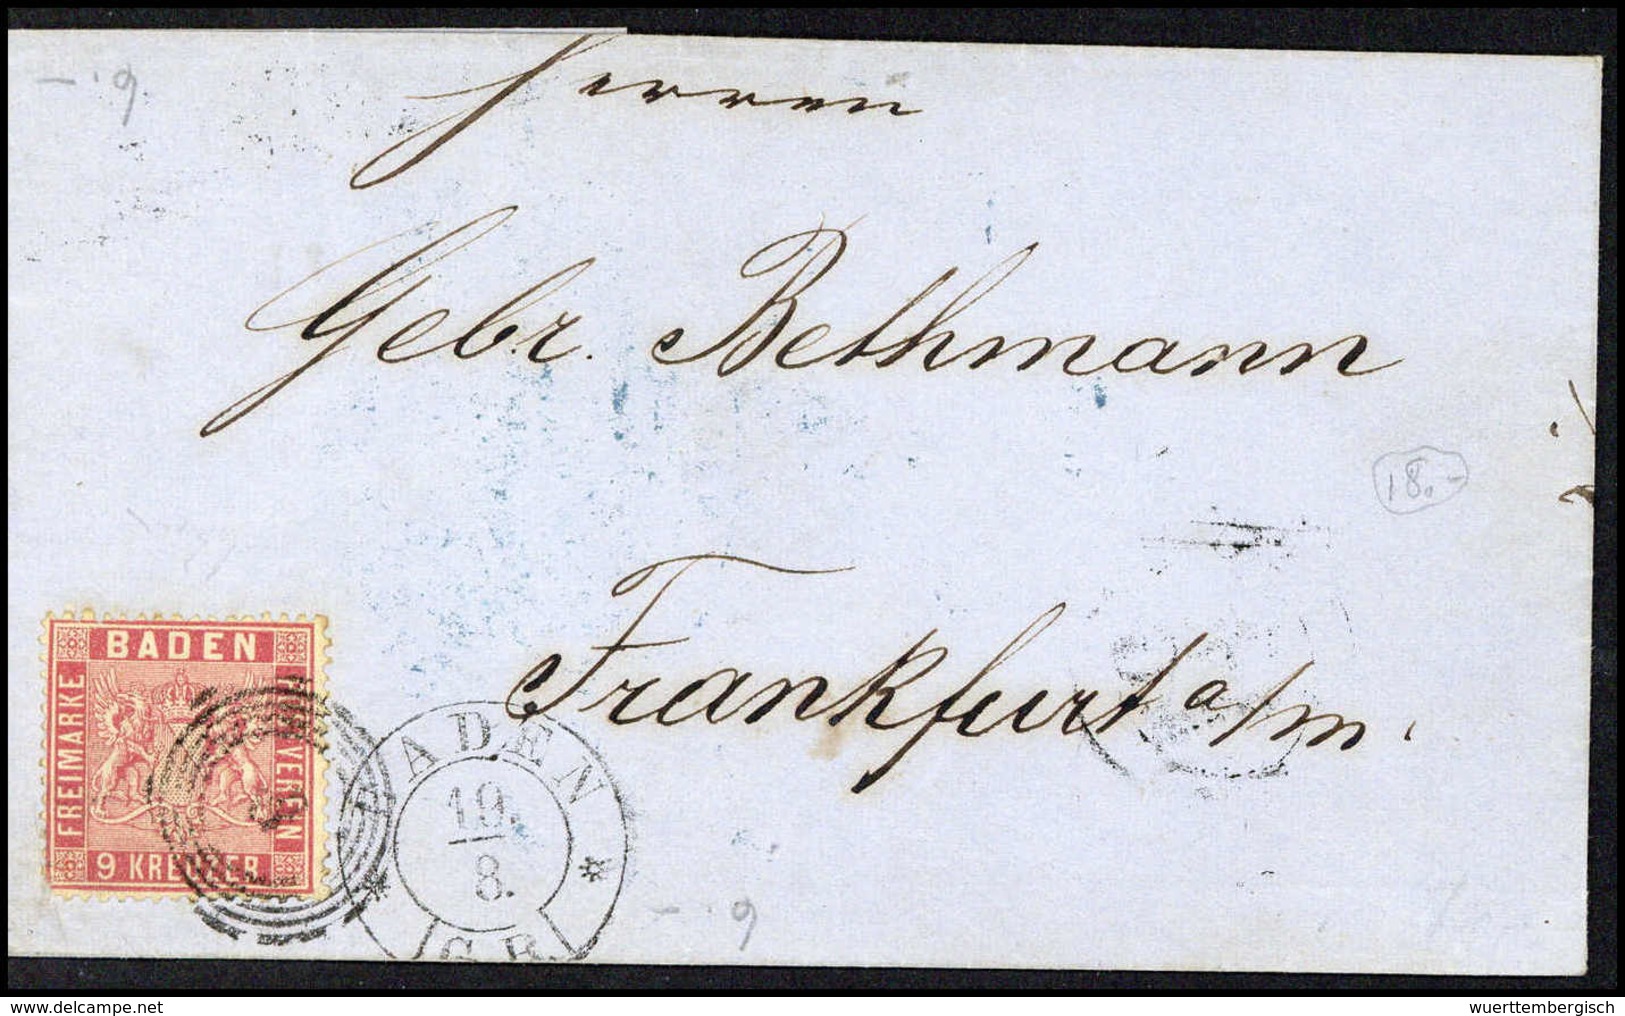 — . 9
Herren
Gebr. Bethmann
18.-
Frankfurt a/m.
BADEN
FREIMARKE
POSTVEREIN
9 KREUZER
8
BADEN
19.
8.
G.B.
— . 9
© www.delcampe.net
wuerttembergisch